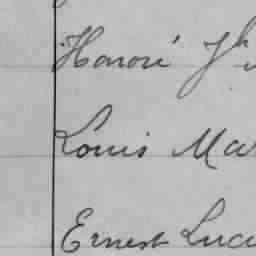 Honoré Jh
Louis Ma
Ernest Luci